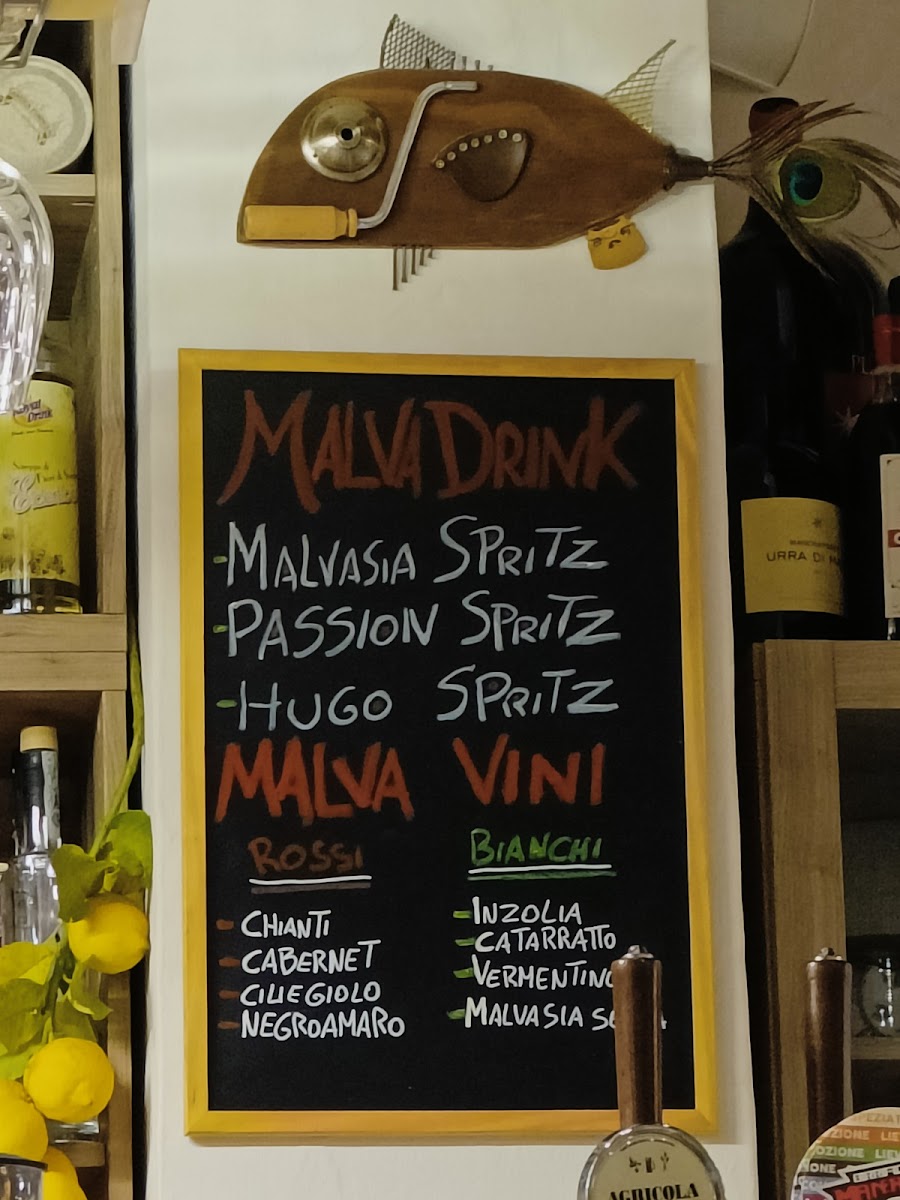 MALVA DRINK
-MALVASIA SPRITZ
-PASSION SPRITZ
-HUGO SPRITZ
MALVA VINI
ROSSI
- CHIANTI
- CABERNET
- CILIEGIOLO
- NEGROAMARO
BIANCHI
- INZOLIA
- CATARRATTO
- VERMENTINO
- MALVASIA
Drink
URRA DI
AGRICOLA